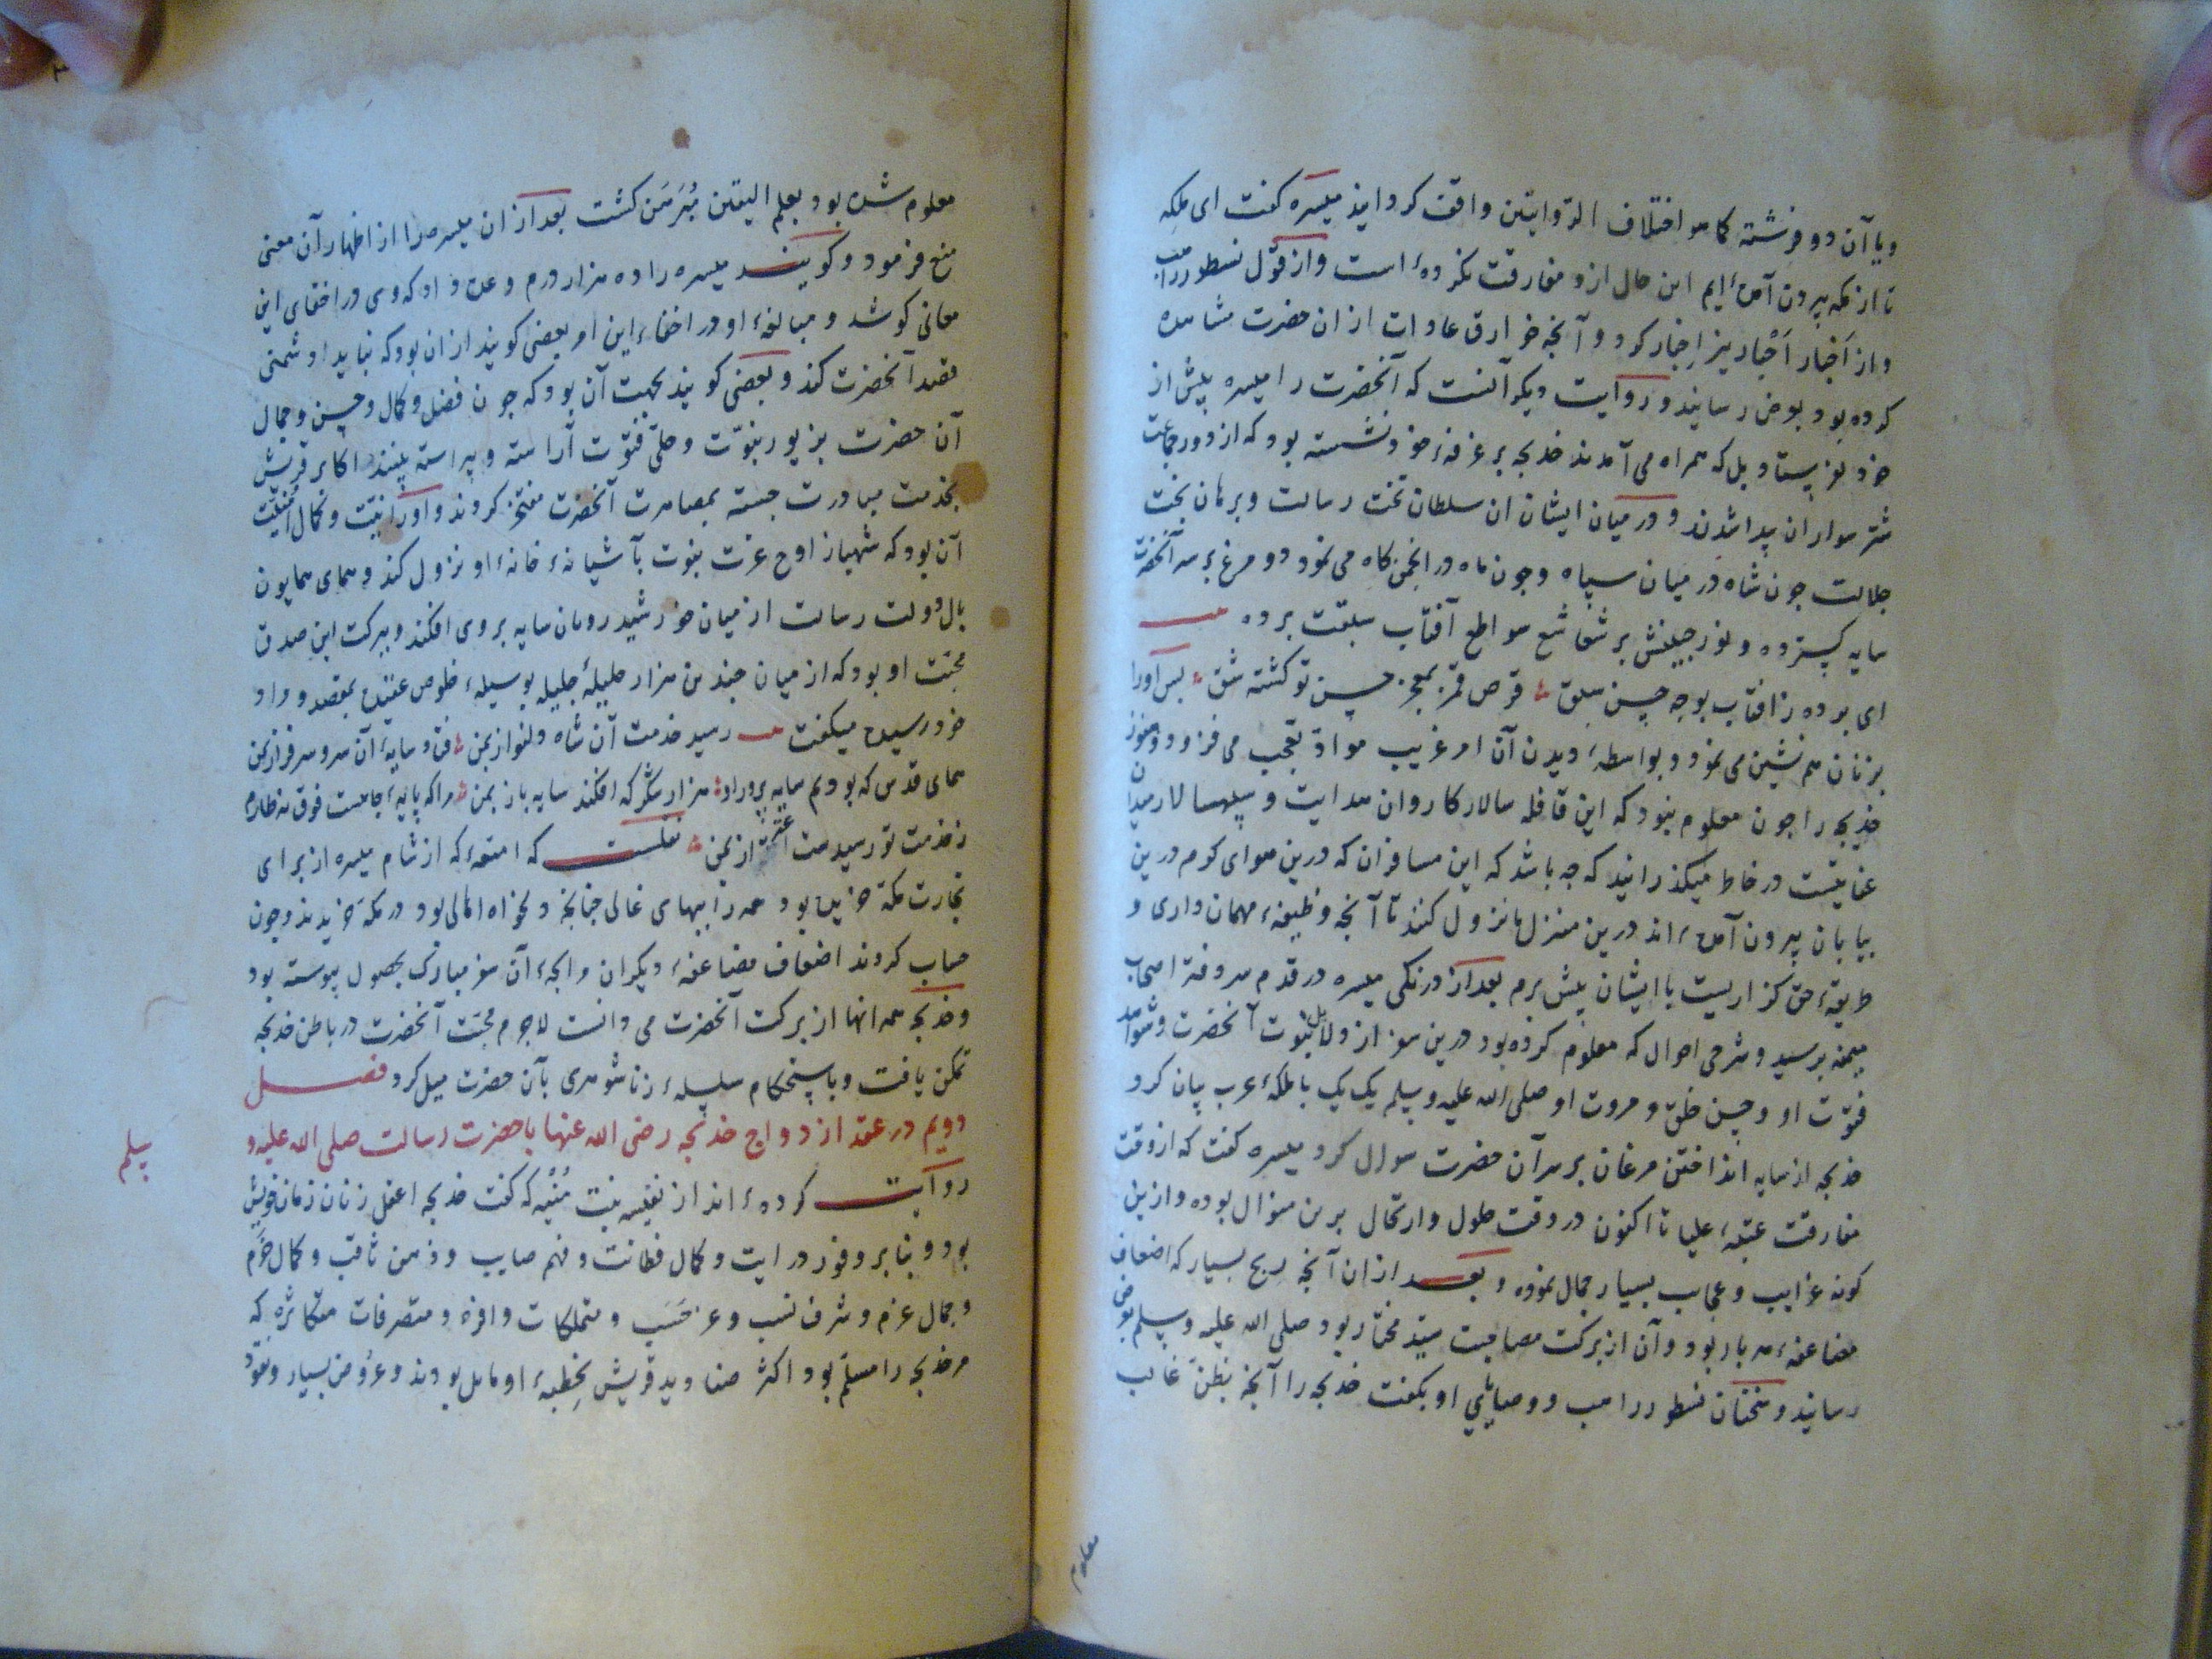 ویا آن دو فرشته کما هو اختلاف الروایتین واقف کردانید میسره کفت ای ملکه
تا از مکه بیرون آمده‌ایم این حال ازو مفارقت نکرده است واز قول نسطور راهب
واز اَخبار اَحْبار نیز اِخبار کرد و آنجه خوارق عادات از ان حضرت مشاهده
کرده بود بعرض رسانید و روایت دیکر آنست که آنحضرت را میسره بیش از
خود نفرستاد بل که همراه می آمدند خدیجه بر غرفهٔ خود نشسته بود که از دور جماعت
شتر سواران پیدا شدند و در میان ایشان ان سلطان تخت رسالت وبرهان بخت
جلالت جون شاه در میان سپاه وجون ماه در انجمن کاه می نمود دو مرغ بر سر آنحضرت
سایه کسترده ونور جبینش بر شعاشع سواطع آفتاب سبقت برده
ای برده ز افتاب بوجه حسن سبق قرص قمر بمعجز حسن تو کشته شق بس اورا
بزنان هم نشین می نمود وبواسطهٔ دیدن آن امر غریب مواد تعجب می فزود وهنوز
خدیجه را جون معلوم نبود که این قافله سالار کاروان هدایت وسپهسالار میدان
عنایتست در خاطر میکذرانید که جه باشد که این مسافران که درین هوای کرم درین
بیابان بیرون آمده‌اند درین منزل ما نزول کنند تا آنجه وظیفهٔ مهمان داری و
طریقهٔ حق کزاریست با ایشان بیش برم بعد از درنکی میسره در قدم سر دفتر اصحاب
میمنه برسید وشرحی احوال که معلوم کرده بود درین سفر از دلایل نبوت آنحضرت وشواهد
فتوّت او وحسن خلق ومروت او صلی الله علیه وسلم یک یک با ملکهٔ عرب بیان کرد
خدیجه از سایه انداختن مرغان بر سر آن حضرت سوال کرد میسره کفت که از وقت
مفارقت عتبهٔ علیا تا اکنون در وقت حلول وارتحال برین منوال بوده وازین
کونه غرایب وعجایب بسیار جمال نموده وبعد از ان آنجه ربح بسیار که اضعاف
مضاعفهٔ هر بار بود وآن از برکت مصاحبت سید مختار بود صلی الله علیه وسلم بعرض
رسانید وسخنان نسطور راهب ووصایای او بکفت خدیجه را آنجه بظن غالب
معلوم
معلوم شده بود بعلم الیقین مُبَرهَن کشت بعد از ان میسره را از اظهار آن معنی
منع فرمود وکویند میسره را ده هزار درم وعده داد که وی در اخفای این
معانی کوشد ومبالغهٔ او در اخفاء این امر بعضی کویند از ان بود که نباید او شمنی
قصد آنحضرت کند وبعضی کویند بجهت آن بود که جون فضل وکمال وحسن وجمال
آن حضرت بزیور نبوّت وحلی فتوّت آراسته وپیراسته بینند اکابر قریش
بخدمت مبادرت جسته بمصاهرت آنحضرت مفتخر کردند واورا نیت وکمال امنیت
آن بود که شهباز اوج عزت نبوت بآشیانهٔ خانهٔ او نزول کند وهمای همایون
بال دولت رسالت از میان خورشید رویان سایه بر وی افکند وببرکت این صدق
محبّت او بود که از میان جندین هزار حلیلهٔ جلیله بوسیلهٔ خلوص عقیده بمقصد ومراد
خود رسیده میکفت رسید خدمت آن شاه دلنواز بمن فتاد سایهٔ آن سرو سرفراز بمن
همای قدس که بودیم سایه پرور او هزار شکر که افکند سایه باز بمن مرا که پایهٔ جاهست فوق نه طارم
ز خدمت تو رسیدست این از بمن نقلست که امتعهٔ که از شام میسره از برای
تجارت مکّه خریده بود همه را ببهای غالی جنانجه دلخواه اهالی بود در مکه خریدند وجون
حساب کردند اضعاف مضاعفهٔ دیکران رابحهٔ آن سفر مبارک بحصول پیوسته بود
وخدیجه همه انها از برکت آنحضرت می دانست لاجرم محبّت آنحضرت در باطن خدیجه
تمکن یافت وباستحکام سلسلهٔ زناشوهری بآن حضرت میل کرد فصل
دویم در عقد ازدواج خدیجه رضی الله عنها با حضرت رسالت صلی الله علیه و
سلم
روایت کرده‌اند از نفیسه بنت مُنْیه که کفت خدیجه اعقل زنان زمان خویش
بود وبنابر وفور درایت وکمال فطانت وفهم صایب وذهن ثاقب وکمال حزم
وجمال عزم وشرف نسب وعز حَسَب ومتملکات وافره ومتصرفات متکاثره که
مر خدیجه را مسلّم بود اکثر صنادید قریش بخِطبهٔ او مایل بودند وعروض بسیار ونقود